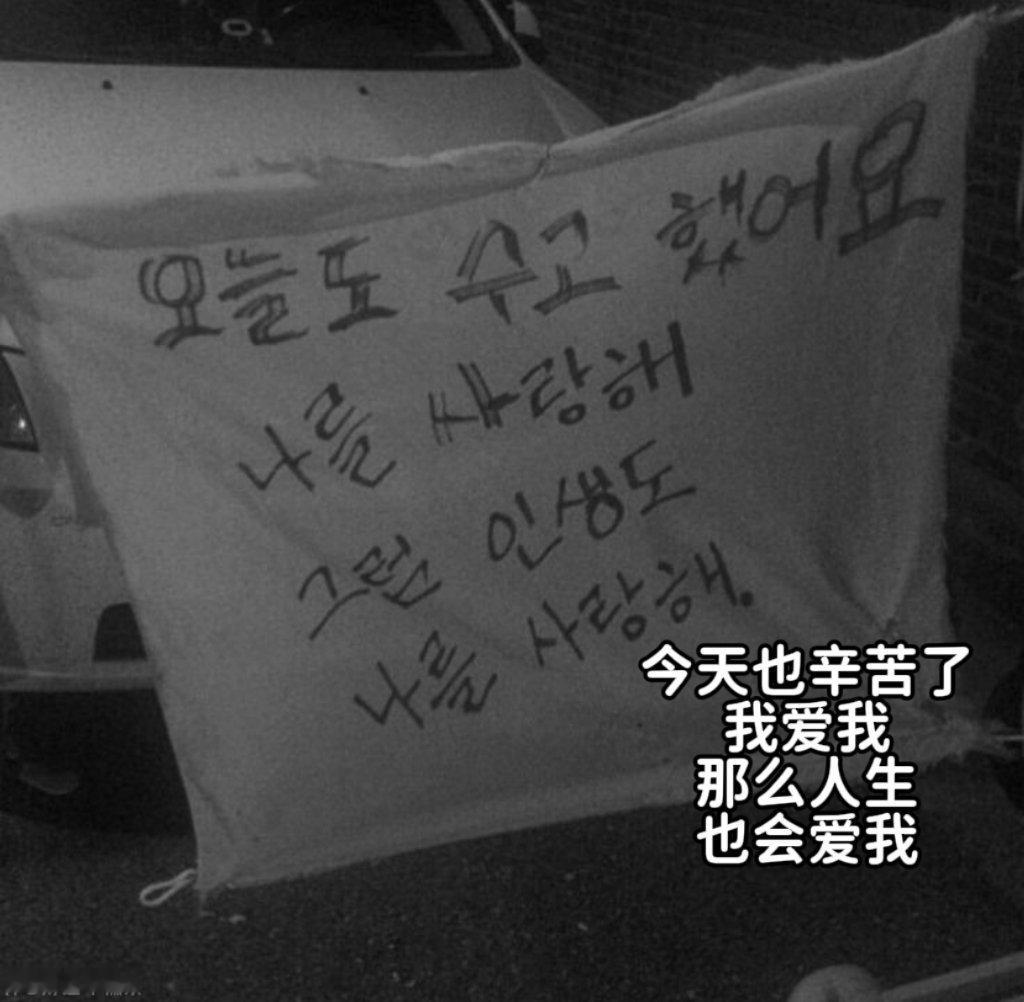 오늘도 수고 했어요
나를 사랑해
그럼 인생도
나를 사랑해.
今天也辛苦了
我爱我
那么人生
也会爱我